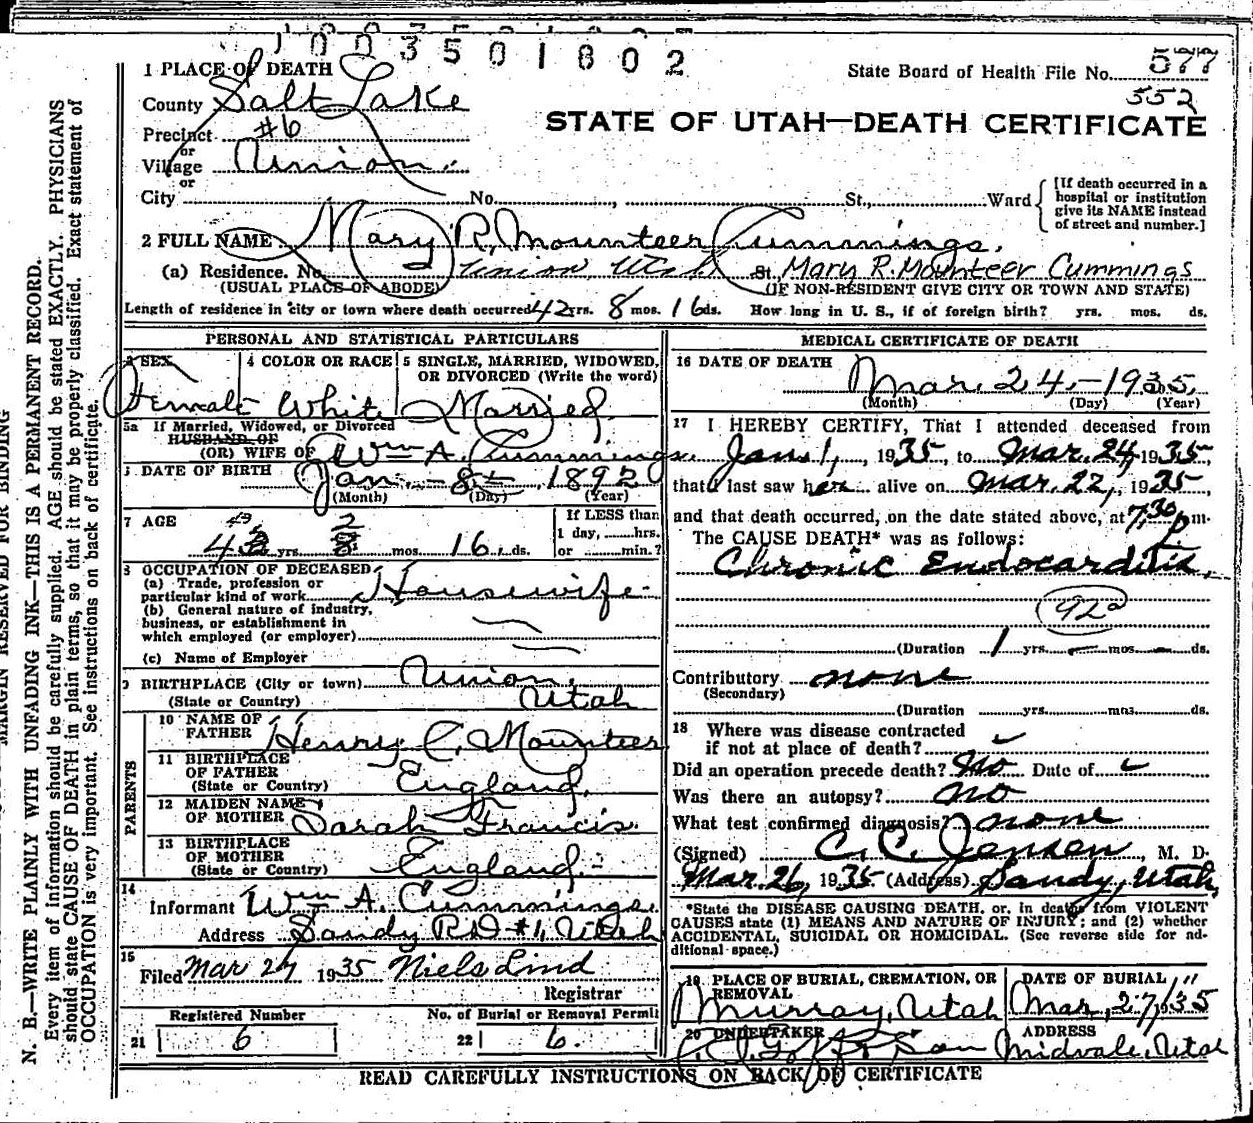 1003501802
1 PLACE OF DEATH
State Board of Health File No. 577
552
County Salt Lake
STATE OF UTAH—DEATH CERTIFICATE
Precinct #6
or
Village Union
or
City No. , St., Ward
[If death occurred in a hospital or institution give its NAME instead of street and number.]
2 FULL NAME Mary R. Mounteer Cummings.
(a) Residence. No. Union, Utah St. Mary R. Mounteer Cummings
(USUAL PLACE OF ABODE) (IF NON-RESIDENT GIVE CITY OR TOWN AND STATE)
Length of residence in city or town where death occurred 42 yrs. 8 mos. 16 ds. How long in U. S., if of foreign birth? yrs. mos. ds.
PERSONAL AND STATISTICAL PARTICULARS
SEX 4 COLOR OR RACE 5 SINGLE, MARRIED, WIDOWED, OR DIVORCED (Write the word)
Female White Married.
5a If Married, Widowed, or Divorced
HUSBAND OF
(OR) WIFE OF Wm A. Cummings.
DATE OF BIRTH Jan. - 8th - 1892
(Month) (Day) (Year)
7 AGE 43 2
yrs. mos. 16 ds.
If LESS than
1 day, hrs.
or min.?
OCCUPATION OF DECEASED
(a) Trade, profession or
particular kind of work Housewife
(b) General nature of industry,
business, or establishment in
which employed (or employer)
(c) Name of Employer
BIRTHPLACE (City or town) Union,
(State or Country) Utah
PARENTS
10 NAME OF
FATHER Henry C. Mounteer
11 BIRTHPLACE
OF FATHER
(State or Country) England.
12 MAIDEN NAME
OF MOTHER Sarah Francis.
13 BIRTHPLACE
OF MOTHER
(State or Country) England.-
14
Informant Wm A. Cummings.
Address Sandy RD #1, Utah
15
Filed Mar 27 1935 Niels Lind
Registrar
Registered Number No. of Burial or Removal Permit
21 6 22 6.
MEDICAL CERTIFICATE OF DEATH
16 DATE OF DEATH
Mar. 24.-1935.
(Month) (Day) (Year)
17 I HEREBY CERTIFY, That I attended deceased from
Jan. 1, 1935, to Mar. 24, 1935,
that I last saw her alive on Mar. 22, 1935,
and that death occurred, on the date stated above, at 7,30 p m.
The CAUSE DEATH* was as follows:
Chronic Endocarditis,
92a
(Duration 1 yrs. - mos. - ds.
Contributory none
(Secondary)
(Duration yrs. mos. ds.
18 Where was disease contracted
if not at place of death?
Did an operation precede death? No Date of
Was there an autopsy? no
What test confirmed diagnosis? none
(Signed) C. C. Jensen, M. D.
Mar. 26, 1935 (Address) Sandy, Utah,
*State the DISEASE CAUSING DEATH, or, in deaths from VIOLENT
CAUSES state (1) MEANS AND NATURE OF INJURY; and (2) whether
ACCIDENTAL, SUICIDAL OR HOMICIDAL. (See reverse side for ad-
ditional space.)
19 PLACE OF BURIAL, CREMATION, OR REMOVAL DATE OF BURIAL
Murray, Utah Mar, 27/35
20 UNDERTAKER ADDRESS
Goff & Son Midvale, Utah
READ CAREFULLY INSTRUCTIONS ON BACK OF CERTIFICATE
MARGIN RESERVED FOR BINDING
N. B.—WRITE PLAINLY WITH UNFADING INK—THIS IS A PERMANENT RECORD.
Every item of information should be carefully supplied. AGE should be stated EXACTLY. PHYSICIANS
should state CAUSE OF DEATH in plain terms, so that it may be properly classified. Exact statement of
OCCUPATION is very important. See instructions on back of certificate.